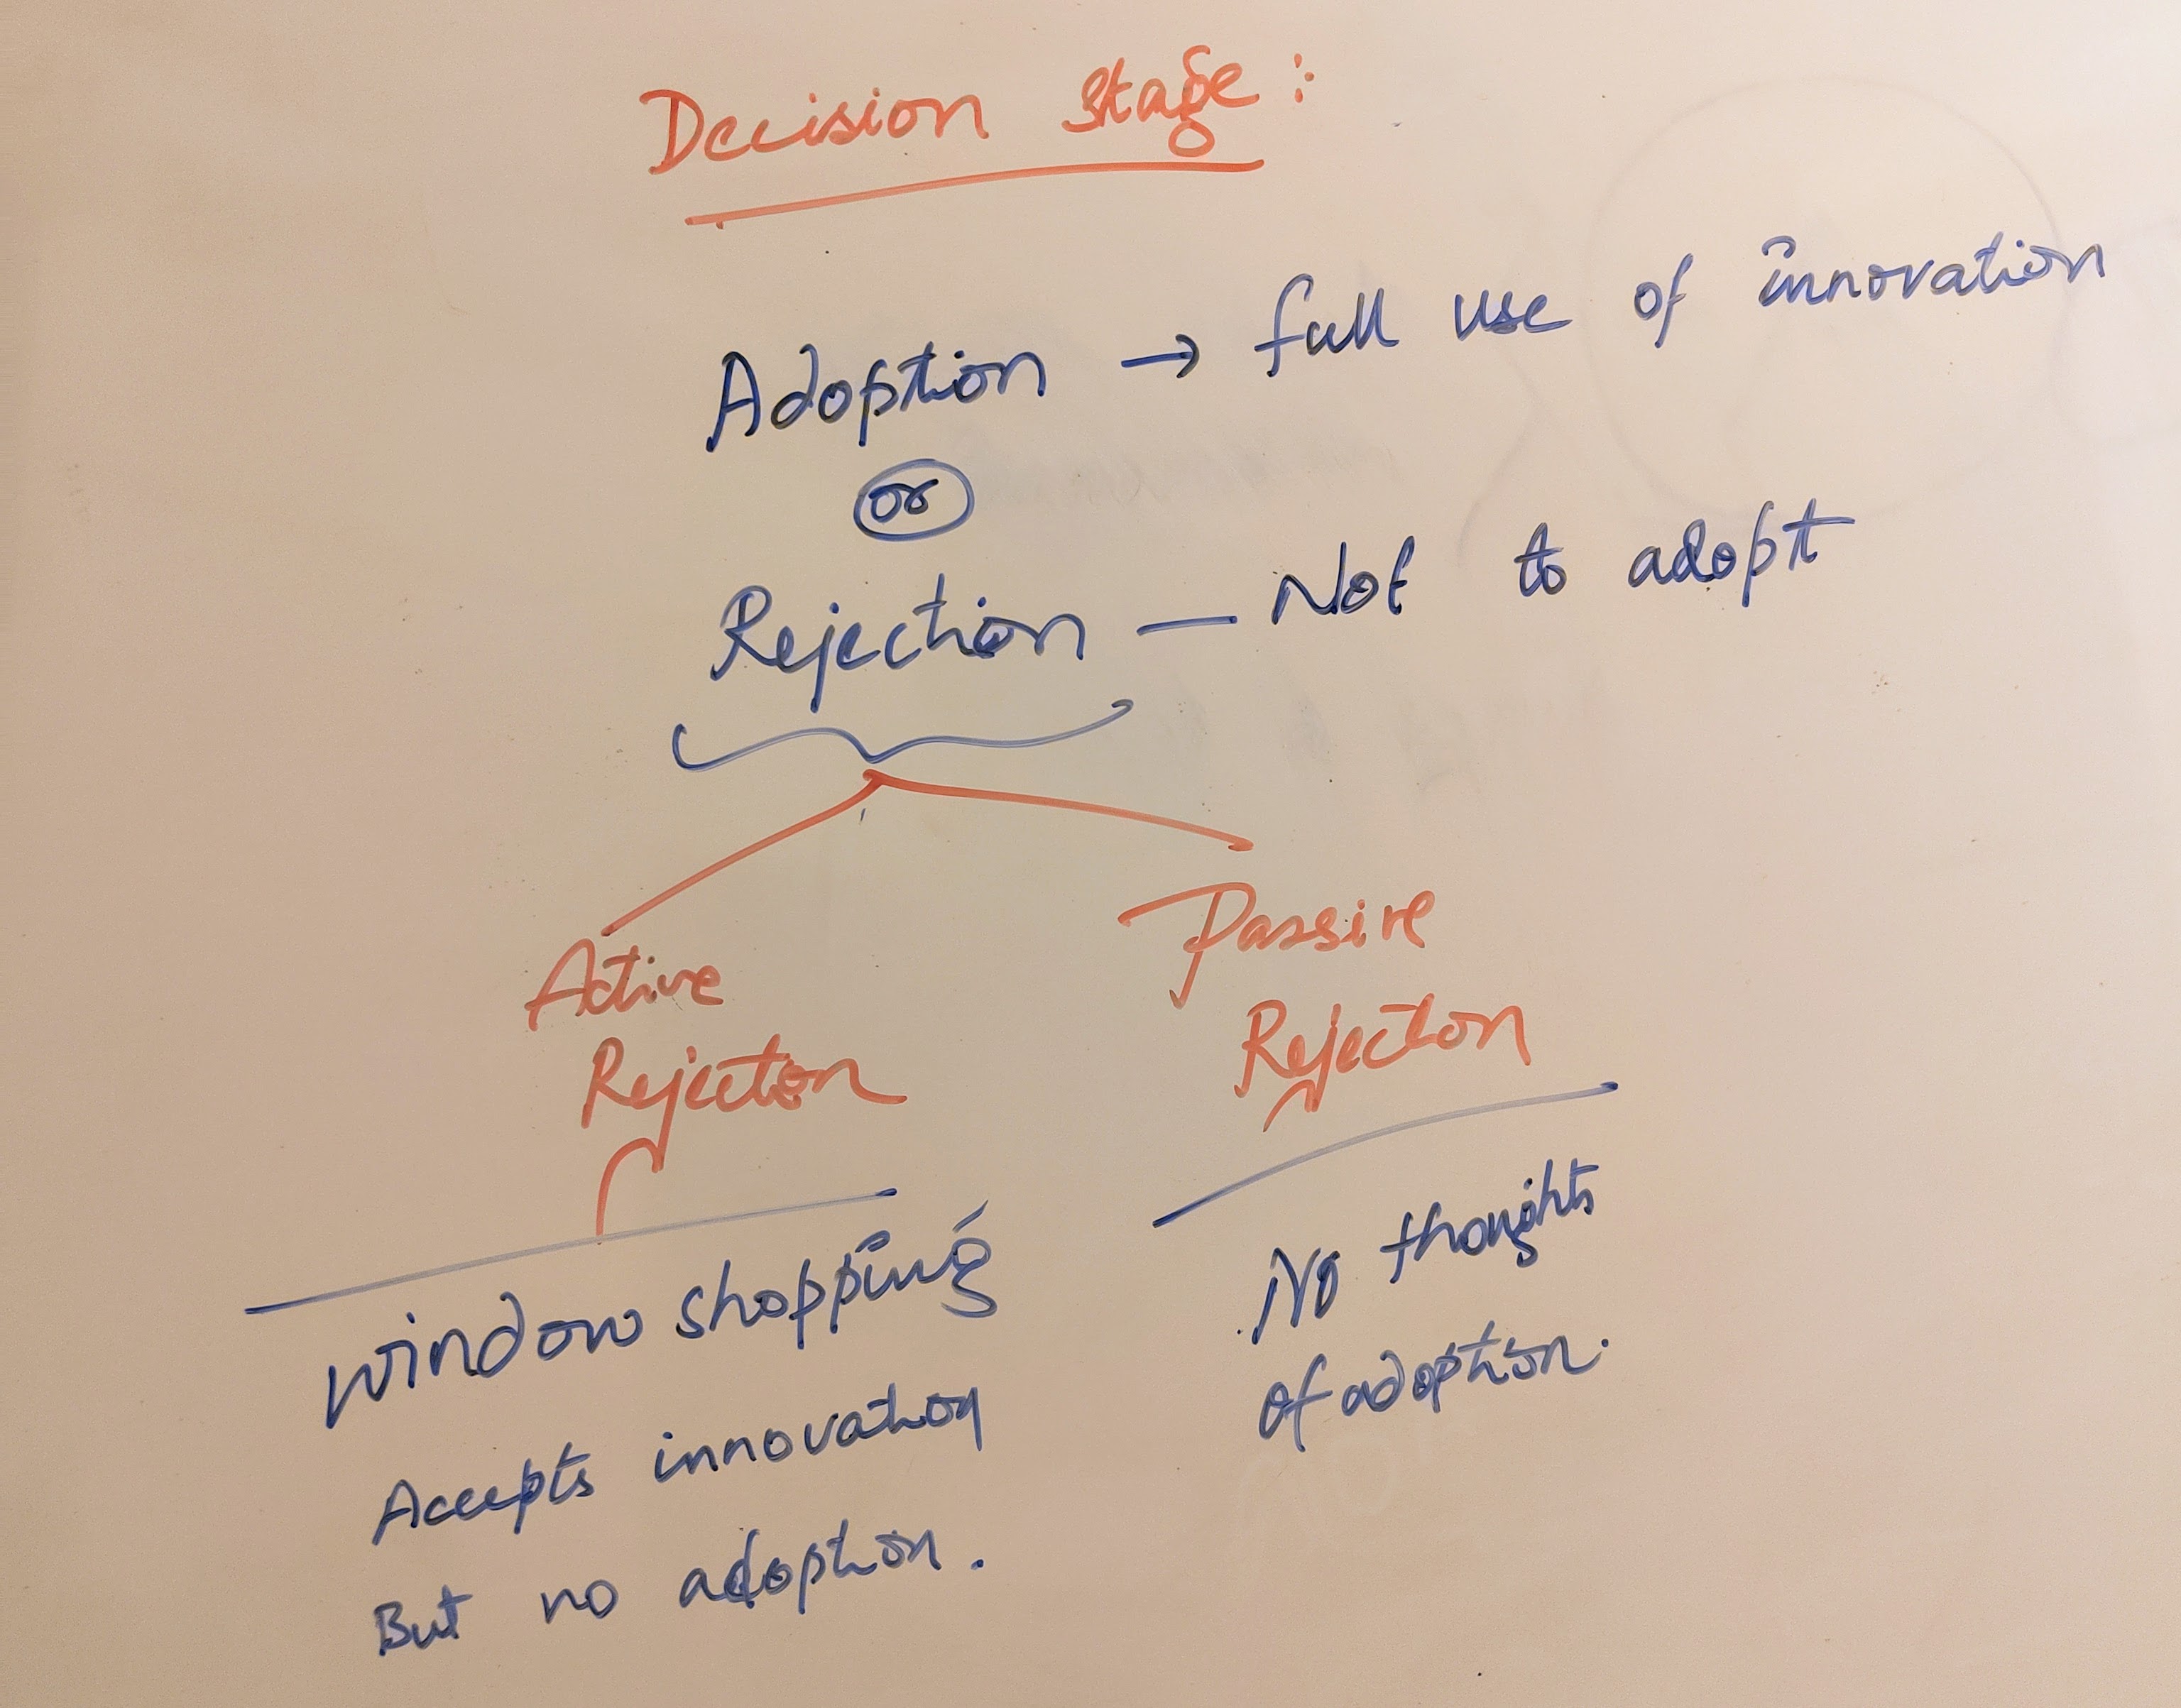 Decision Stage :
Adoption → full use of innovation
or
Rejection — Not to adopt
Active
Rejection
Passive
Rejection
window shopping
Accepts innovation
But no adoption.
No thoughts
of adoption.